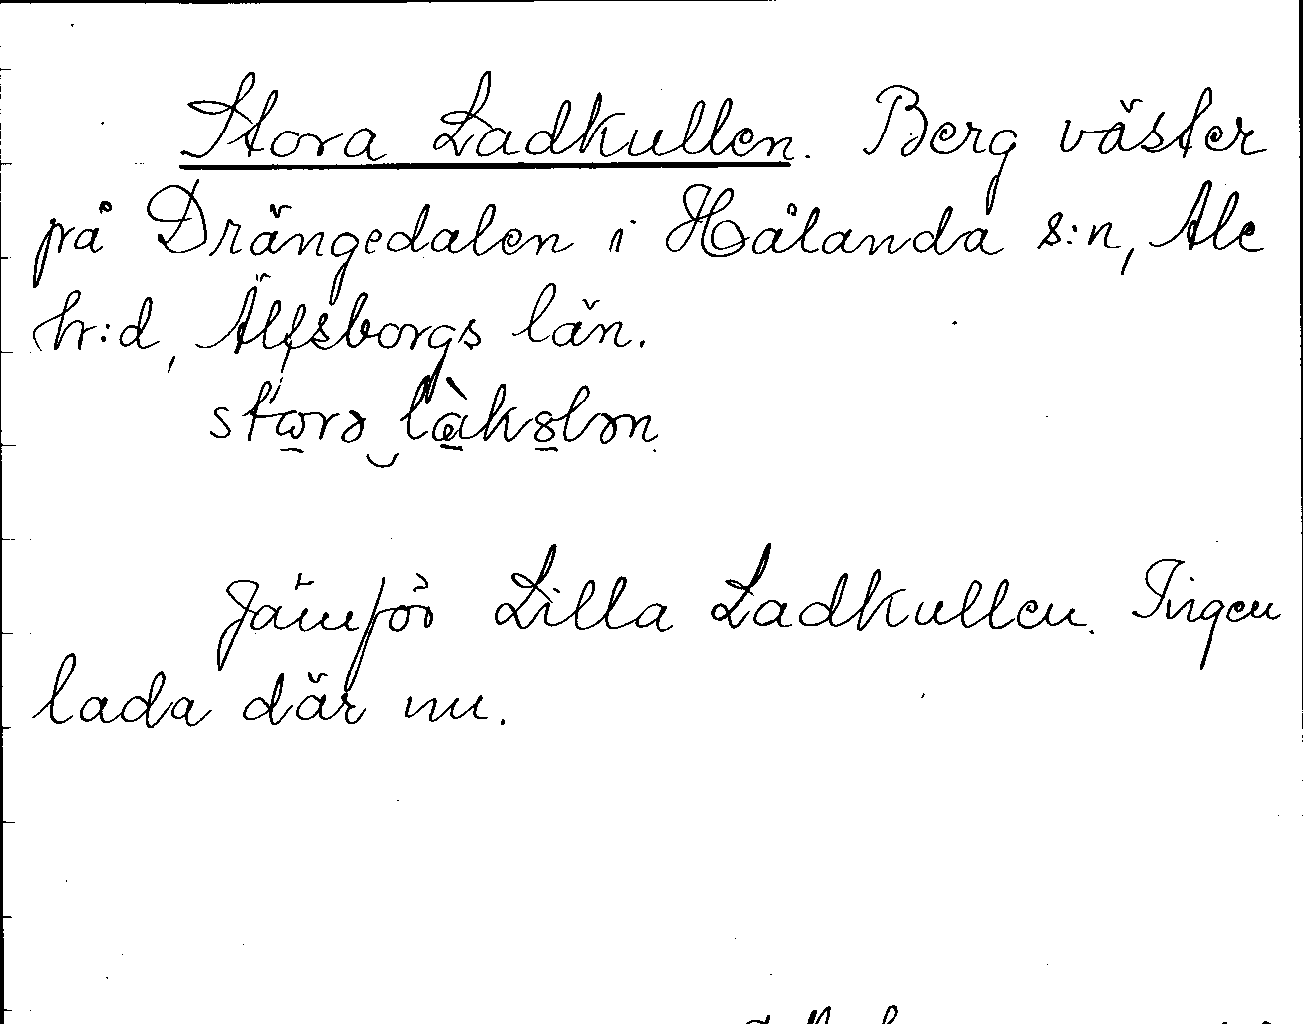 Stora Ladkullen. Berg väster
på Drängedalen i Hålanda s:n, Ale
hr:d, Älfsborgs län.
storə‿làkȣlən
Jämför Lilla Ladkullen. Ingen
lada där nu.